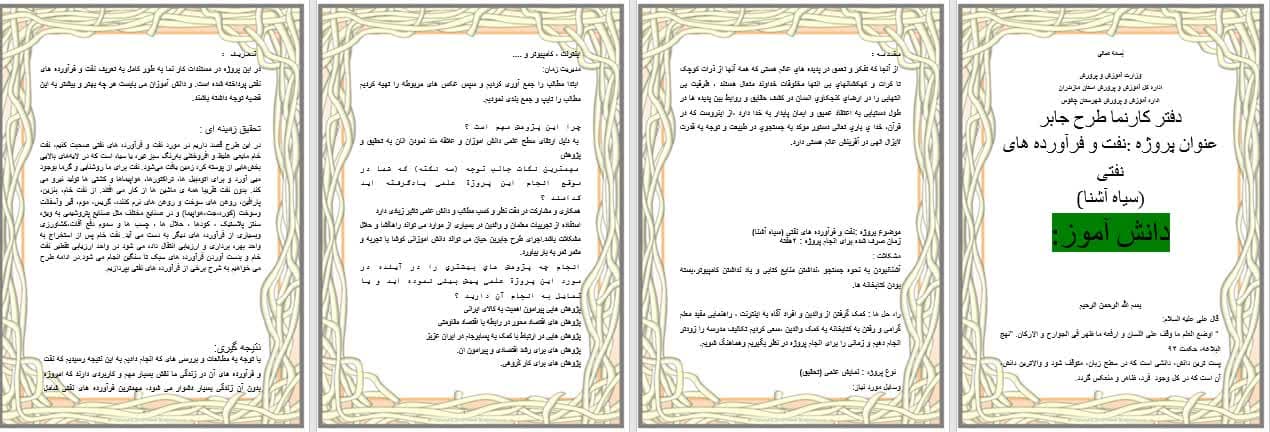 بسمه تعالی
وزارت آموزش و پرورش
اداره کل آموزش و پرورش استان مازندران
اداره آموزش و پرورش شهرستان چالوس
دفتر کارنما طرح جابر
عنوان پروژه :نفت و فرآورده های
نفتی
(سیاه آشنا)
دانش آموز:
بسم الله الرحمن الرحیم
قال علی علیه السلام:
" اوضع العلم ما وقف علی اللسان و ارفعه ما ظهر فی الجوارح و الارکان. "نهج
البلاغه، حکمت ۹۲
پست ترین دانش، دانشی است که در سطح زبان، متوقف شود و والاترین دانش،
آن است که در کل وجود فرد، ظاهر و منعکس گردد.
مقدمه :
از آنجا که تفکر و تعمق در پدیده هاي عالم هستی که همه آنها از ذرات کوچک
تا کرات و کهکشانهاي بی انتها مخلوقات خداوند متعال هستند ، ظرفیت بی
انتهایی را در ارضاي کنجکاوي انسان در کشف حقایق و روابط بین پدیده ها در
طول دستیابی به اعتقاد عمیق و ایمان پایدار به خدا دارد .از اینروست که در
قرآن، خدا ي باري تعالی دستور موکد به جستجوي در طبیعت و توجه به قدرت
لایزال الهی در آفرینش عالم هستی دارد.
موضوع پروژه :نفت و فرآورده های نفتی (سیاه آشنا)
زمان صرف شده برای انجام پروژه : ۲هفته
مشکلات :
آشنانبودن به نحوه جستجو ،نداشتن منابع کتابی و یاد نداشتن کامپیوتر،بسته
بودن کتابخانه ها.
راه حل ها : کمک گرفتن از والدین و افراد آگاه به اینترنت ، راهنمایی مفید معلم
گرامی و رفتن به کتابخانه به کمک والدین ،سعی کردیم تکالیف مدرسه را زودتر
انجام دهیم و زمانی را برای انجام پروژه در نظر بگیریم وهماهنگ شویم.
نوع پروژه : نمایش علمی (تحقیق)
وسایل مورد نیاز:
اینترنت ، کامپیوتر و ....
مدیریت زمان:
ابتدا مطالب را جمع آوری کردیم و سپس عکس های مربوطه را تهیه کردیم
مطالب را تایپ و جمع بندی نمودیم.
چرا این پژوهش مهم است ؟
به دلیل ارتقای سطح علمی دانش آموزان و علاقه مند نمودن انان به تحقیق و
پژوهش
مهمترین نکات جالب توجه (سه نکته) که شما در
موقع انجام این پروژة علمی یادگرفته اید
کدامند ؟
همکاری و مشارکت در دقت نظر و کسب مطالب و دانش علمی تاثیر زیادی دارد
استفاده از تجربیات معلمان و والدین در بسیاری از موارد می تواند راهگشا و حلال
مشکلات باشد.اجرای طرح جابربن حیان می تواند دانش آموزانی کوشا با تجربه و
مثمر ثمر به بار بیاورد.
انجام چه پژوهش هاي بیشتري را در آینده در
مورد این پروژة علمی پیش بینی نموده اید و یا
تمایل به انجام آن دارید ؟
پژوهش هایی پیرامون اهمیت به کالای ایرانی
پژوهش های اقتصاد محور در رابطه با اقتصاد مقاومتی
پژوهش هایی در ارتباط با کمک به پسابرجام در ایران عزیز
پژوهش های برای رشد اقتصادی و پیرامون آن.
پژوهش های برای کار گروهی.
تعاریف :
در این پروژه در مستندات کار نما به طور کامل به تعریف نفت و فرآورده های
نفتی پرداخته شده است. و دانش آموزان می بایست هر چه بهتر و بیشتر به این
قضیه توجه داشته باشند.
تحقیق زمینه ای :
در این طرح قصد داریم در مورد نفت و فرآورده های نفتی صحبت کنیم، نفت
خام مایعی غلیظ و افروختنی به‌رنگ سبز تیره یا سیاه است که در لایه‌های بالایی
بخش‌هایی از پوسته کره زمین یافت می‌شود. نفت برای ما روشنایی و گرما بوجود
می آورد و برای اتومبیل ها، تراکتورها، هواپیماها و کشتی ها تولید نیرو می
کند. بدون نفت تقریبا همه ی ماشین ها از کار می افتند. از نفت خام، بنزین،
پارافین، روغن های سوخت و روغن های نرم کننده، گریس، موم، قیر وآسفالت
وسوخت (کوره،جت،هواپیما) و در صنایع مختلف مثل صنایع پتروشیمی به ویژه
سنتز پلاستیک ، کودها ، حلال ها ، چسب ها و سموم دفع آفات،کشاورزی
وبسیاری از فرآورده های دیگر به دست می آید. نفت خام پس از استخراج به
واحد بهره برداری و ارزیابی انتقال داده می شود در واحد ارزیابی تقطیر نفت
خام و بدست آوردن فرآورده های سبک تا سنگین انجام می شود.در ادامه طرح
می خواهیم به شرح برخی از فرآورده های نفتی بپردازیم.
نتیجه گیری:
با توجه به مطالعات و بررسی های که انجام دادیم به این نتیجه رسیدیم که نفت
و فرآورده های آن در زندگی ما نقش بسیار مهم و کاربردی دارند که امروزه
بدون آن زندگی بسیار دشوار می شود، مهمترین فرآورده های نفتی شامل